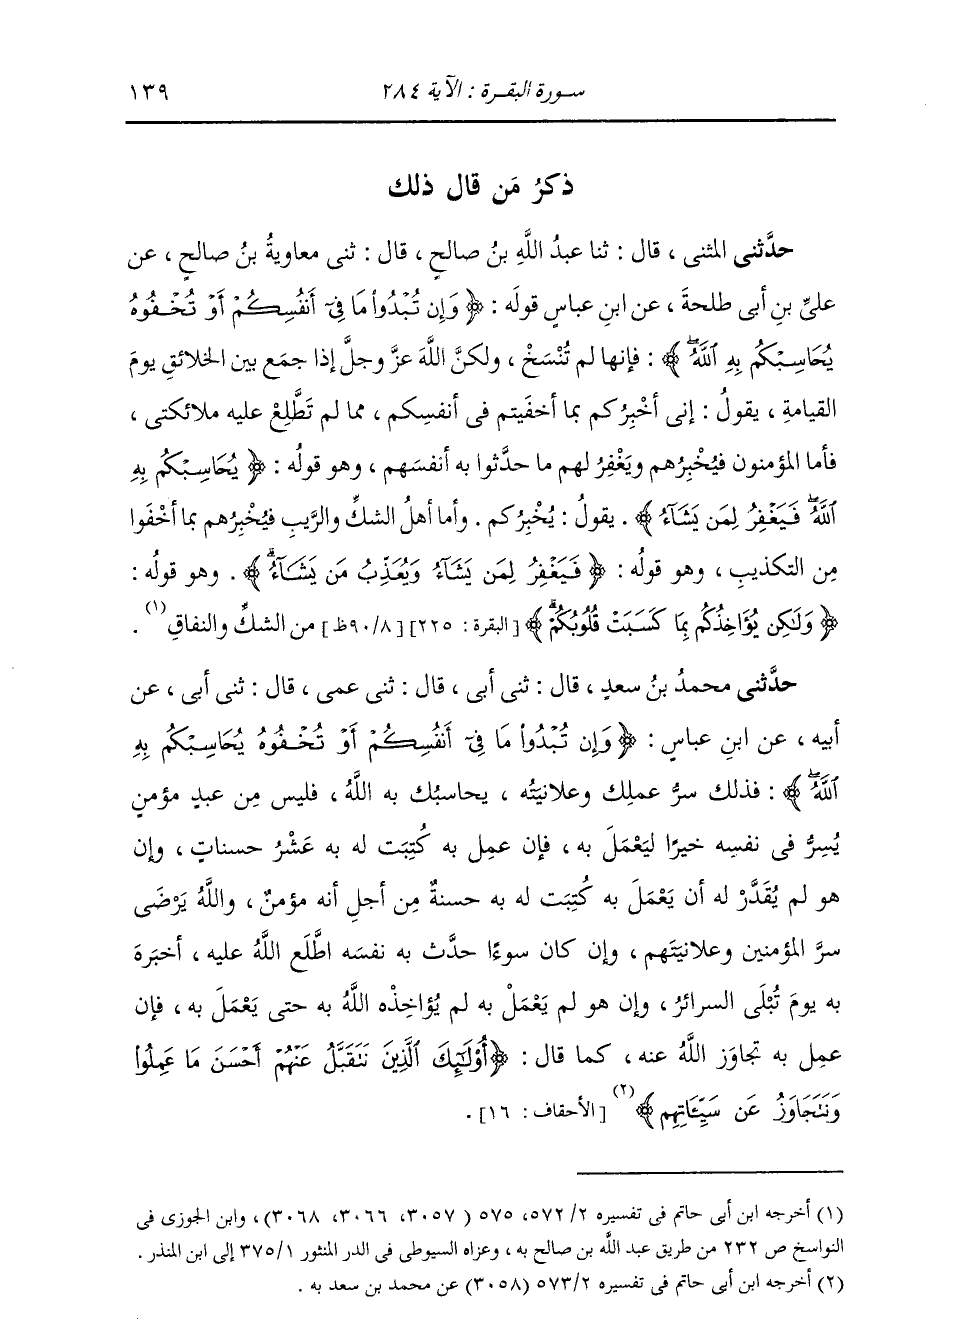 سورة البقرة : الآية ٢٨٤ ١٣٩
ذكرُ مَن قال ذلك
حدَّثنى المثنى ، قال : ثنا عبدُ اللَّهِ بنُ صالحٍ ، قال : ثنى معاويةُ بنُ صالحٍ ، عن
علىِّ بنِ أبى طلحةَ ، عن ابنِ عباسٍ قولَه : ﴿ وَإِن تُبْدُوا۟ مَا فِىٓ أَنفُسِكُمْ أَوْ تُخْفُوهُ
يُحَاسِبْكُم بِهِ ٱللَّهُۖ ﴾ : فإنها لم تُنْسَخْ ، ولكنَّ اللَّهَ عزَّ وجلَّ إذا جمَع بين الخلائقِ يومَ
القيامةِ ، يقولُ : إنى أخْبِرُكم بما أخفَيتم فى أنفسِكم ، مما لم تَطَّلِعْ عليه ملائكتى ،
فأما المؤمنون فيُخْبِرُهم ويَغْفِرُ لهم ما حدَّثوا به أنفسَهم ، وهو قولُه : ﴿ يُحَاسِبْكُم بِهِ
ٱللَّهُۖ فَيَغْفِرُ لِمَن يَشَآءُ ﴾ . يقولُ : يُخْبِرُكم . وأما أهلُ الشكِّ والرَّيبِ فيُخْبِرُهم بما أخْفَوا
مِن التكذيبِ ، وهو قولُه : ﴿ فَيَغْفِرُ لِمَن يَشَآءُ وَيُعَذِّبُ مَن يَشَآءُۗ ﴾ . وهو قولُه :
﴿ وَلَٰكِن يُؤَاخِذُكُم بِمَا كَسَبَتْ قُلُوبُكُمْۗ ﴾ [ البقرة : ٢٢٥] [٩٠/٨ظ ] من الشكِّ والنفاقِ(١) .
حدَّثنى محمدُ بنُ سعدٍ ، قال : ثنى أبى ، قال : ثنى عمى ، قال : ثنى أبى ، عن
أبيه ، عن ابنِ عباسٍ : ﴿ وَإِن تُبْدُوا۟ مَا فِىٓ أَنفُسِكُمْ أَوْ تُخْفُوهُ يُحَاسِبْكُم بِهِ
ٱللَّهُۖ ﴾ : فذلك سرُّ عملِك وعلانيَتُه ، يحاسبُك به اللَّهُ ، فليس مِن عبدٍ مؤمنٍ
يُسِرُّ فى نفسِه خيرًا ليَعْمَلَ به ، فإن عمِل به كُتِبَت له به عَشْرُ حسناتٍ ، وإن
هو لم يُقَدَّرْ له أن يَعْمَلَ به كُتِبَت له به حسنةٌ مِن أجلِ أنه مؤمنٌ ، واللَّهُ يَرْضَى
سرَّ المؤمنين وعلانيَتَهم ، وإن كان سوءًا حدَّث به نفسَه اطَّلَع اللَّهُ عليه ، أخبرَه
به يومَ تُبْلَى السرائرُ ، وإن هو لم يَعْمَلْ به لم يُؤاخِذْه اللَّهُ به حتى يَعْمَلَ به ، فإن
عمِل به تجاوَز اللَّهُ عنه ، كما قال : ﴿أُو۟لَٰٓئِكَ ٱلَّذِينَ نَتَقَبَّلُ عَنْهُمْ أَحْسَنَ مَا عَمِلُوا۟
وَنَتَجَاوَزُ عَن سَيِّـَٔاتِهِم ﴾(٢) [ الأحقاف : ١٦] .
(١) أخرجه ابن أبى حاتم فى تفسيره ٥٧٢/٢، ٥٧٥ ( ٣٠٥٧، ٣٠٦٦، ٣٠٦٨) ، وابن الجوزى فى
النواسخ ص ٢٣٢ من طريق عبد اللَّه بن صالح به ، وعزاه السيوطى فى الدر المنثور ٣٧٥/١ إلى ابن المنذر .
(٢) أخرجه ابن أبى حاتم فى تفسيره ٥٧٣/٢ (٣٠٥٨) عن محمد بن سعد به .